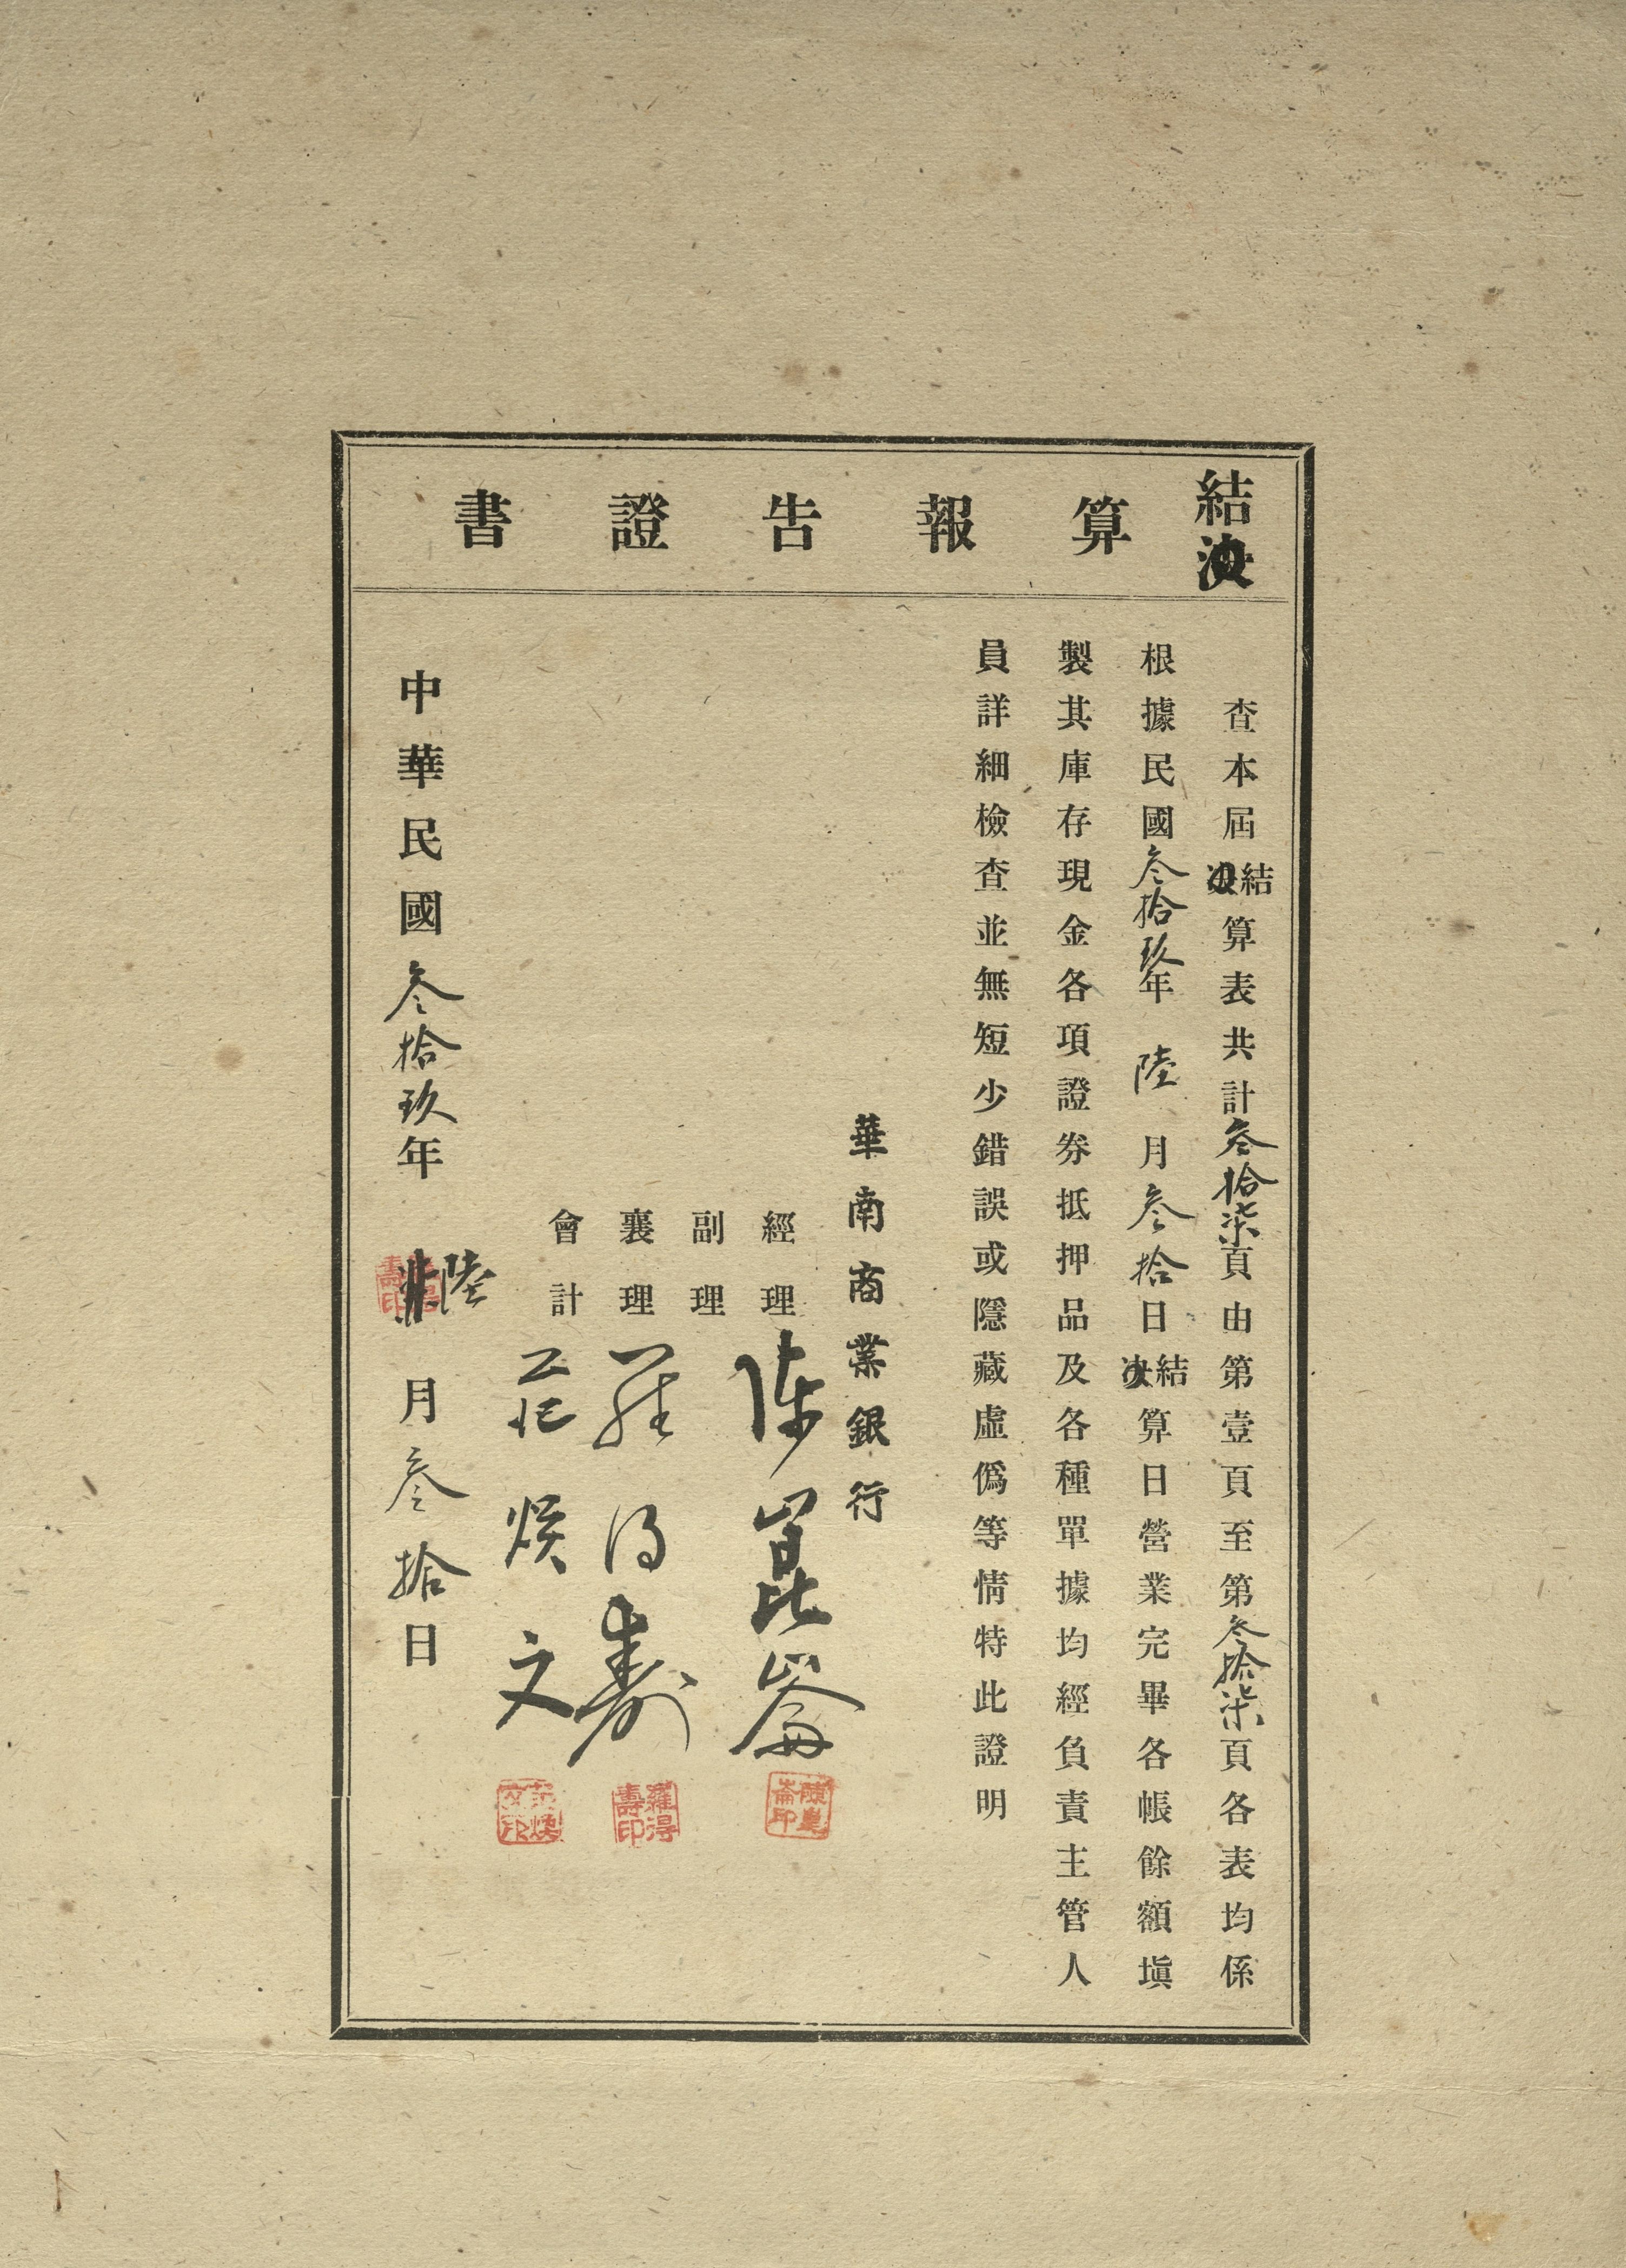 結決算報告證書
查本屆結決算表共計叁拾柒頁由第壹頁至第叁拾柒頁各表均係
根據民國叁拾玖年陸月叁拾日結決算日營業完畢各帳餘額塡
製其庫存現金各項證券抵押品及各種單據均經負責主管人
員詳細檢查並無短少錯誤或隱藏虛僞等情特此證明
華南商業銀行
經理 陳崑崙
副理
襄理 羅得壽
會計 莊焕文
中華民國叁拾玖年陸月叁拾日
羅得壽印